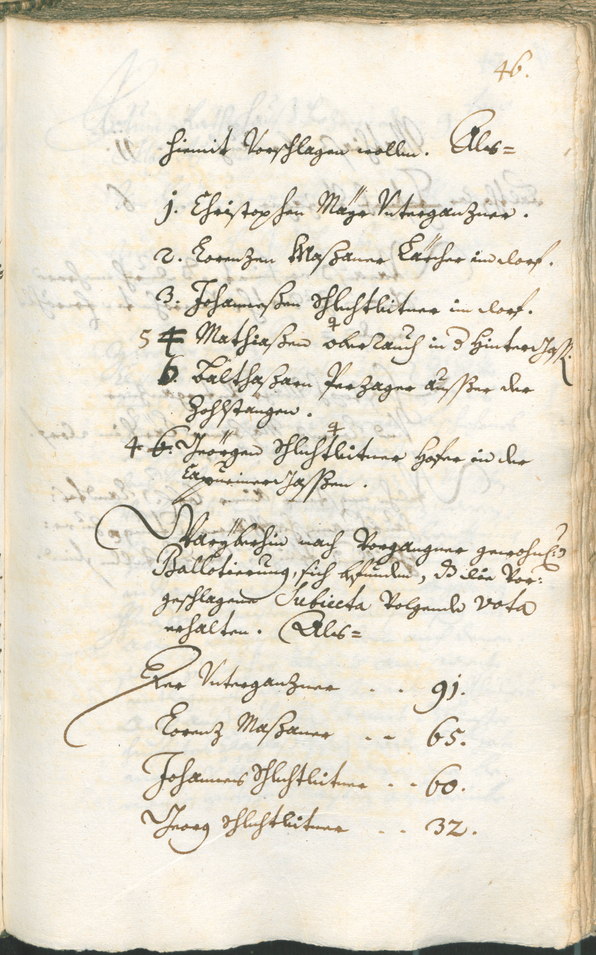 46.
hiemit Vorschlagen wollen. Als=
1. Christophen Mayr Unterganzner.
2. Lorenzen Maßaner Lärcher im dorf.
3. Johanneßen Schlichtleitner im dorf.
5 4 Mathiaßen oberrauch in d Hinter Gaß.
6. Balthaßarn Perzager ausser der
Zohlstangen.
4 6. Georgen Schlichtleitner Hofer in der
Gassen.
Waryberhin nach Vorgangner gewohnl:
Ballotierung, sich befunden, d die Vor:
geschlagene Subiecta Volgende vota
erhalten. Als=
Der Unterganzner - - 91.
Lorenz Maßaner - - 65.
Johannes Schlichtleitner - - 60.
Georg Schlichtleitner - - 32.